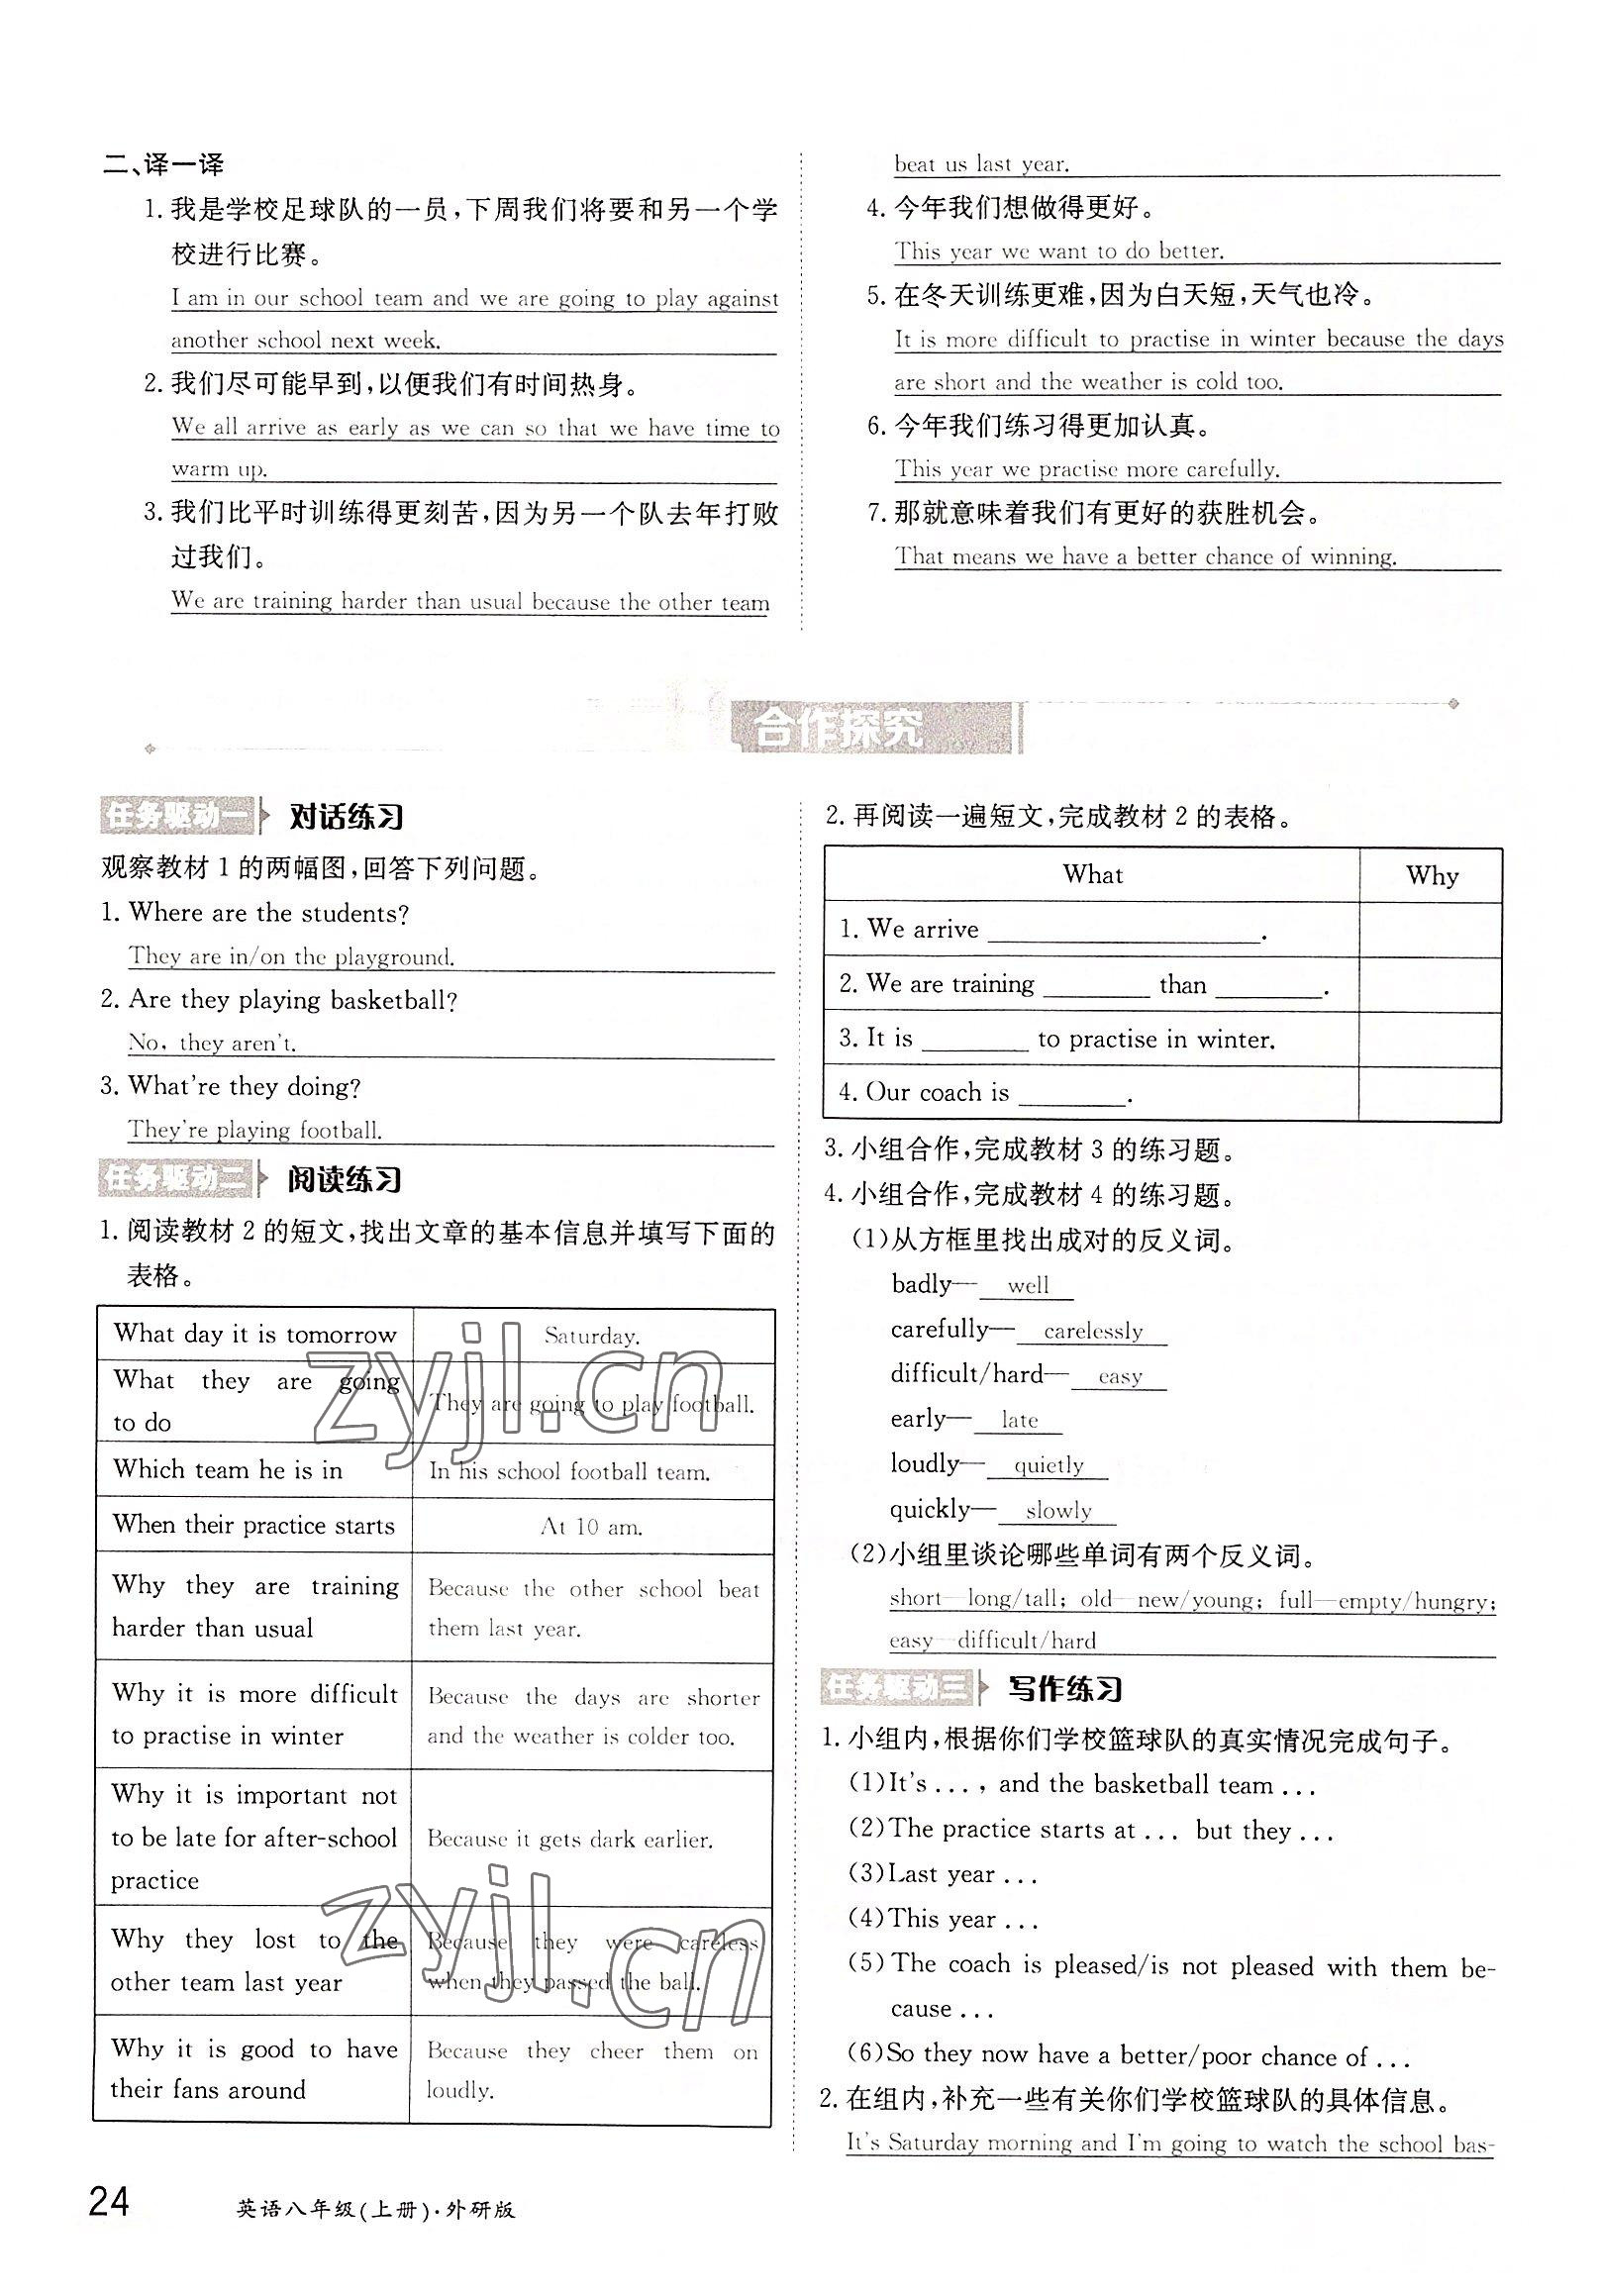 二、译一译
1. 我是学校足球队的一员,下周我们将要和另一个学
校进行比赛。
I am in our school team and we are going to play against
another school next week.
2. 我们尽可能早到,以便我们有时间热身。
We all arrive as early as we can so that we have time to
warm up.
3. 我们比平时训练得更刻苦,因为另一个队去年打败
过我们。
We are training harder than usual because the other team
beat us last year.
4. 今年我们想做得更好。
This year we want to do better.
5. 在冬天训练更难,因为白天短,天气也冷。
It is more difficult to practise in winter because the days
are short and the weather is cold too.
6. 今年我们练习得更加认真。
This year we practise more carefully.
7. 那就意味着我们有更好的获胜机会。
That means we have a better chance of winning.
合作探究
任务驱动一 对话练习
观察教材 1 的两幅图,回答下列问题。
1. Where are the students?
They are in/on the playground.
2. Are they playing basketball?
No, they aren't.
3. What're they doing?
They're playing football.
任务驱动二 阅读练习
1. 阅读教材 2 的短文,找出文章的基本信息并填写下面的
表格。
What day it is tomorrow
Saturday.
What they are going
to do
They are going to play football.
Which team he is in
In his school football team.
When their practice starts
At 10 am.
Why they are training
harder than usual
Because the other school beat
them last year.
Why it is more difficult
to practise in winter
Because the days are shorter
and the weather is colder too.
Why it is important not
to be late for after-school
practice
Because it gets dark earlier.
Why they lost to the
other team last year
Because they were careless
when they passed the ball.
Why it is good to have
their fans around
Because they cheer them on
loudly.
zyjl.cn
zyjl.cn
2. 再阅读一遍短文,完成教材 2 的表格。
What Why
1. We arrive ____.
2. We are training ____ than ____.
3. It is ____ to practise in winter.
4. Our coach is ____.
3. 小组合作,完成教材 3 的练习题。
4. 小组合作,完成教材 4 的练习题。
(1)从方框里找出成对的反义词。
badly— well
carefully— carelessly
difficult/hard— easy
early— late
loudly— quietly
quickly— slowly
(2)小组里谈论哪些单词有两个反义词。
short—long/tall; old—new/young; full—empty/hungry;
easy—difficult/hard
任务驱动三 写作练习
1. 小组内,根据你们学校篮球队的真实情况完成句子。
(1)It's ..., and the basketball team ...
(2)The practice starts at ... but they ...
(3)Last year ...
(4)This year ...
(5)The coach is pleased/is not pleased with them be-
cause ...
(6)So they now have a better/poor chance of ...
2. 在组内,补充一些有关你们学校篮球队的具体信息。
It's Saturday morning and I'm going to watch the school bas-
24 英语八年级(上册)·外研版